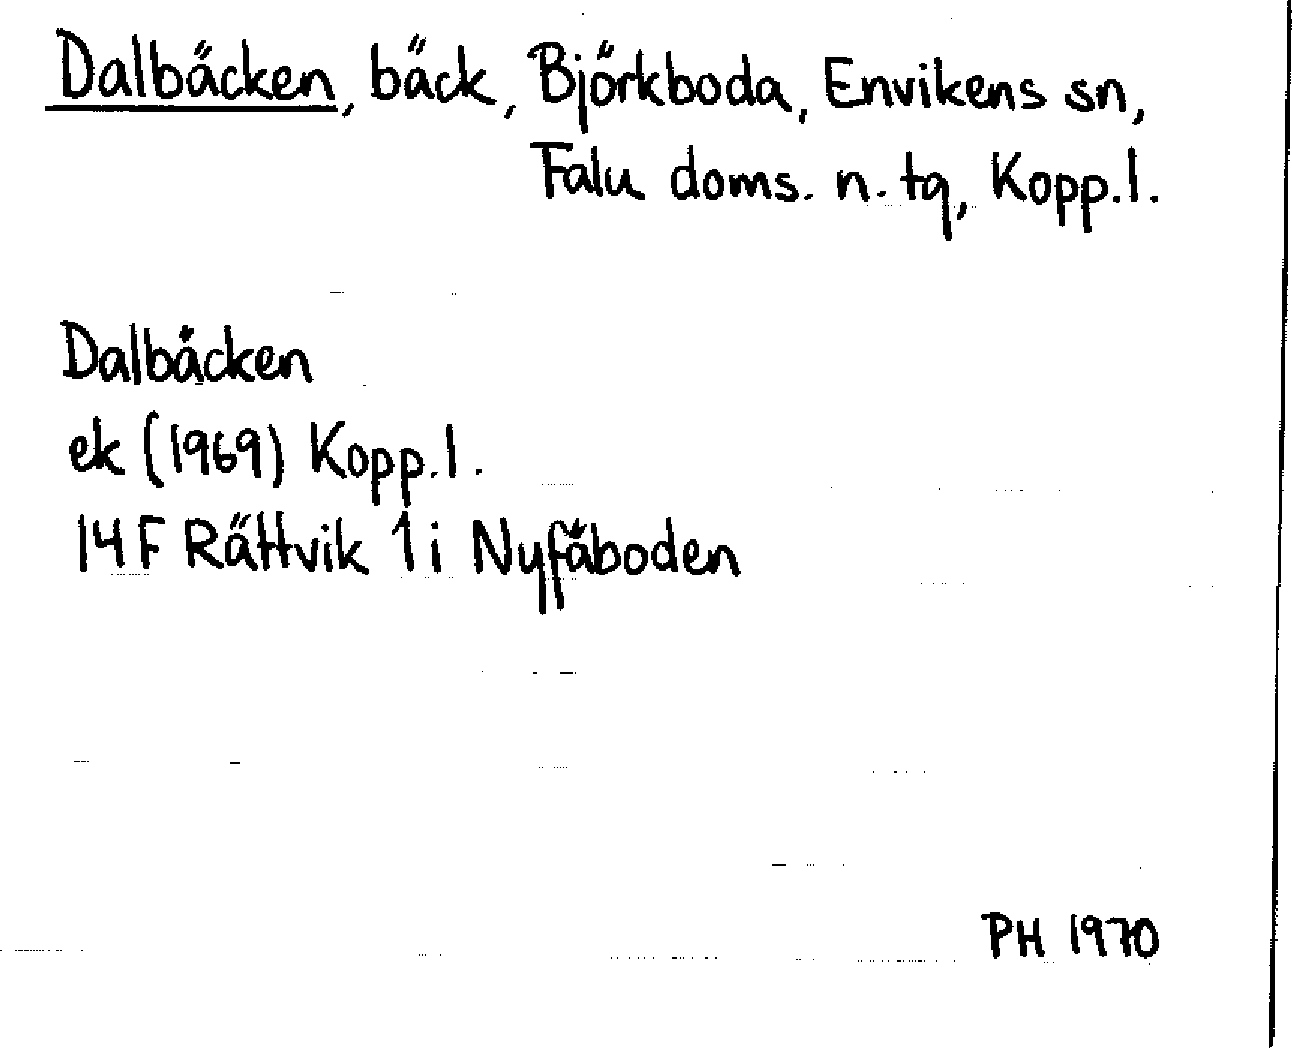 Dalbäcken, bäck, Björkboda, Envikens sn,
Falu doms. n. tg, Kopp.l.
Dalbäcken
ek (1969) Kopp.l.
14F Rättvik 1i Nyfäboden
PH 1970